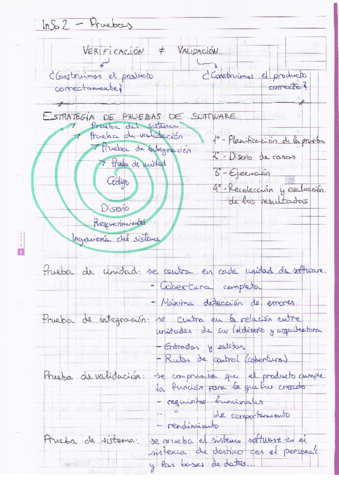 InSo2 - Pruebas
VERIFICACIÓN ≠ VALIDACIÓN
¿Construimos el producto correctamente?
¿Construimos el producto correcto?
ESTRATEGIA DE PRUEBAS DE SOFTWARE
→ Prueba del sistema
→ Prueba de validación
→ Prueba de integración
→ Prueba de unidad
Código
Diseño
Requerimientos
Ingeniería del sistema
1º - Planificación de la prueba
2º - Diseño de casos
3º - Ejecución
4º - Recolección y evaluación
de los resultados
Prueba de unidad: se centra en cada unidad de software.
- Cobertura completa
- Máxima detección de errores.
Prueba de integración: se centra en la relación entre
unidades de su diseño y arquitectura
- Entradas y salidas
- Rutas de control (cobertura)
Prueba de validación: se comprueba que el producto cumple
la función para la que fue creado
- requisitos funcionales
- " de comportamiento
- rendimiento
Prueba de sistema: se prueba el sistema software en el
sistema de destino con el personal
y las bases de datos...